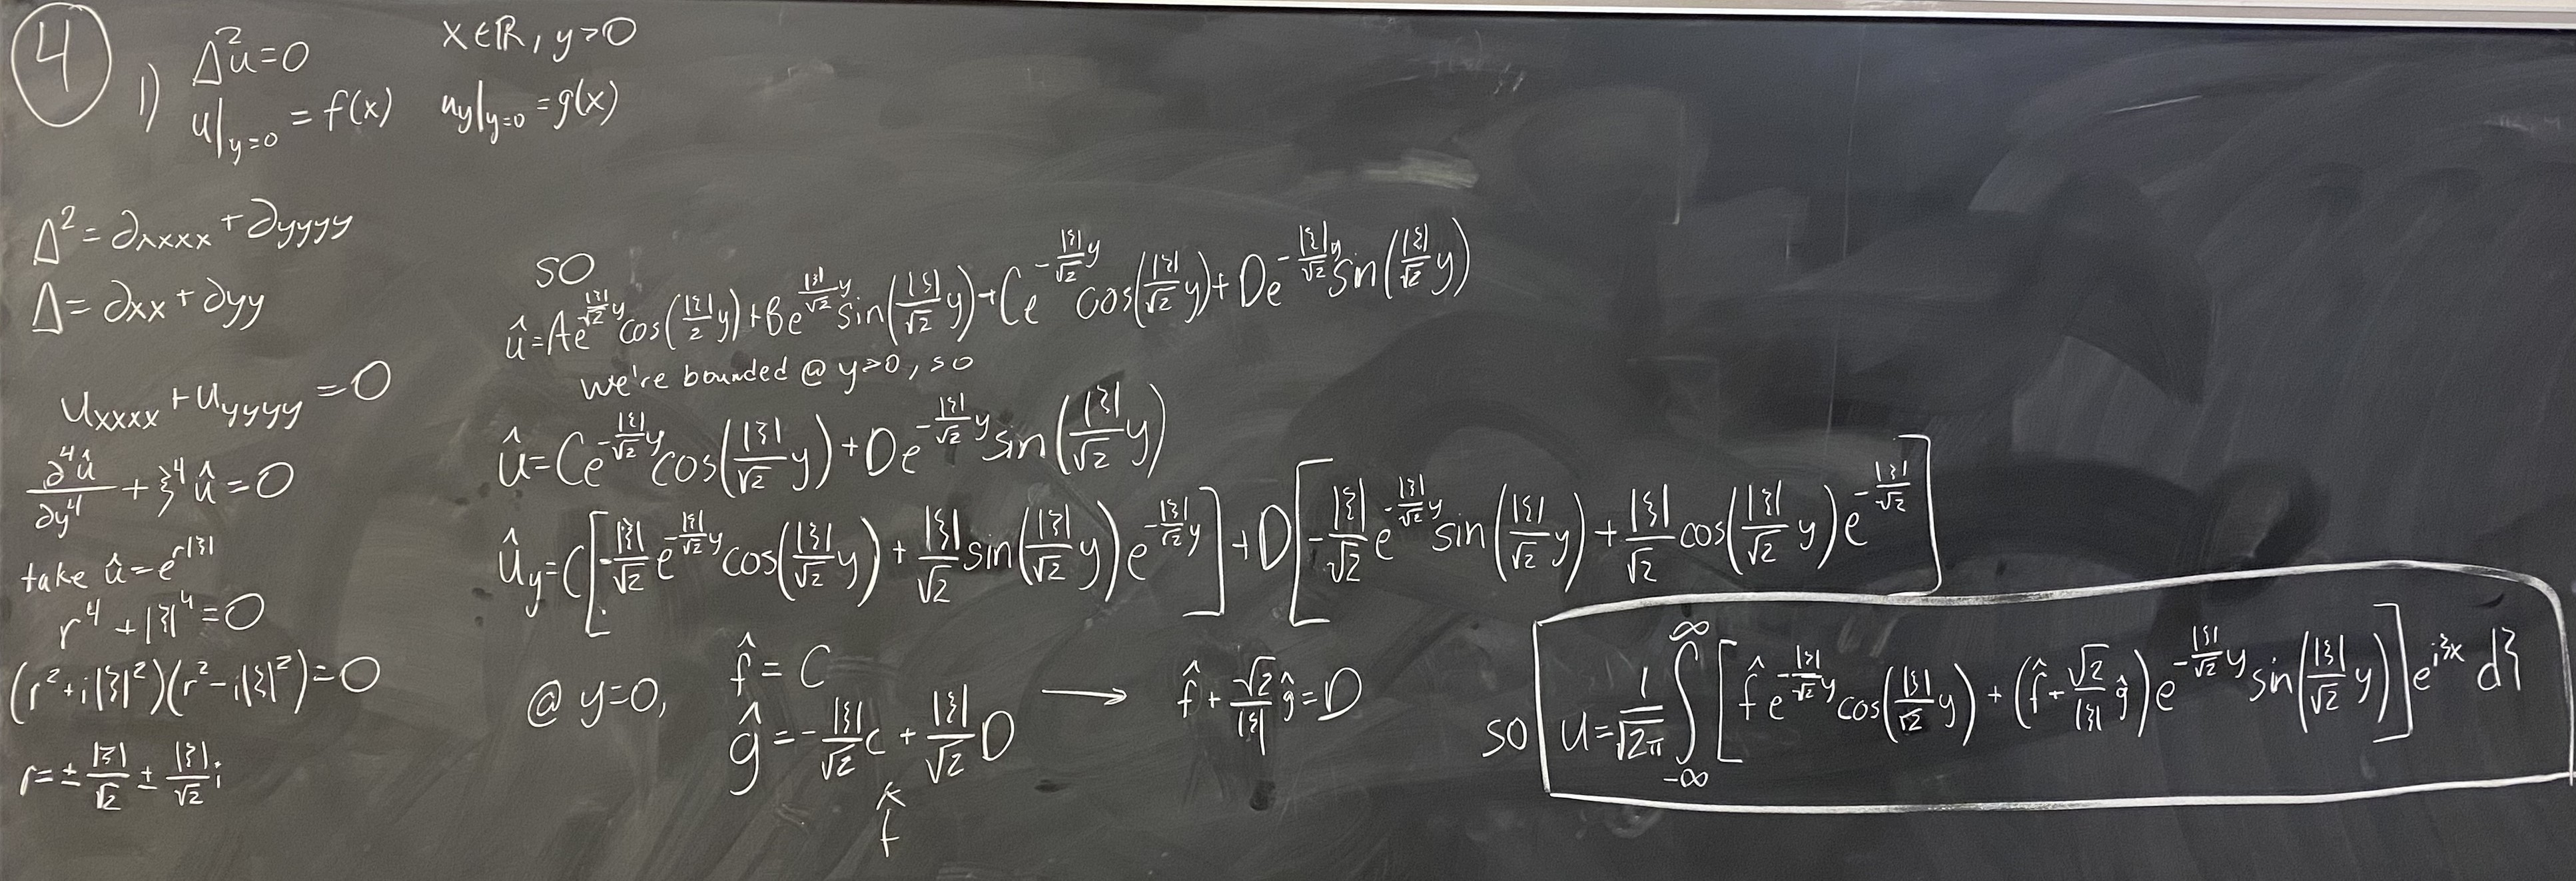 ④ 1) Δ²u=0    x∈ℝ, y>0
u|_{y=0} = f(x)    u_y|_{y=0} = g(x)
Δ² = ∂xxxx + ∂yyyy
Δ = ∂xx + ∂yy
u_{xxxx} + u_{yyyy} = 0
∂⁴û/∂y⁴ + ξ⁴û = 0
take û = e^{r|ξ|}
r⁴ + |ξ|⁴ = 0
(r² + i|ξ|²)(r² - i|ξ|²) = 0
r = ± |ξ|/√2 ± |ξ|/√2 i
so
û = Ae^{|ξ|/√2 y} cos(|ξ|/2 y) + Be^{|ξ|/√2 y} sin(|ξ|/√2 y) + Ce^{-|ξ|/√2 y} cos(|ξ|/√2 y) + De^{-|ξ|/√2 y} sin(|ξ|/√2 y)
we're bounded @ y>0, so
û = Ce^{-|ξ|/√2 y} cos(|ξ|/√2 y) + De^{-|ξ|/√2 y} sin(|ξ|/√2 y)
û_y = C[-|ξ|/√2 e^{-|ξ|/√2 y} cos(|ξ|/√2 y) + |ξ|/√2 sin(|ξ|/√2 y) e^{-|ξ|/√2 y}] + D[-|ξ|/√2 e^{-|ξ|/√2 y} sin(|ξ|/√2 y) + |ξ|/√2 cos(|ξ|/√2 y) e^{-|ξ|/√2}]
@ y=0, f̂ = C
ĝ = -|ξ|/√2 C + |ξ|/√2 D → f̂ + √2/|ξ| ĝ = D
f̂
so u = 1/√2π ∫_{-∞}^{∞} [f̂ e^{-|ξ|/√2 y} cos(|ξ|/√2 y) + (f̂ + √2/|ξ| ĝ) e^{-|ξ|/√2 y} sin(|ξ|/√2 y)] e^{iξx} dξ